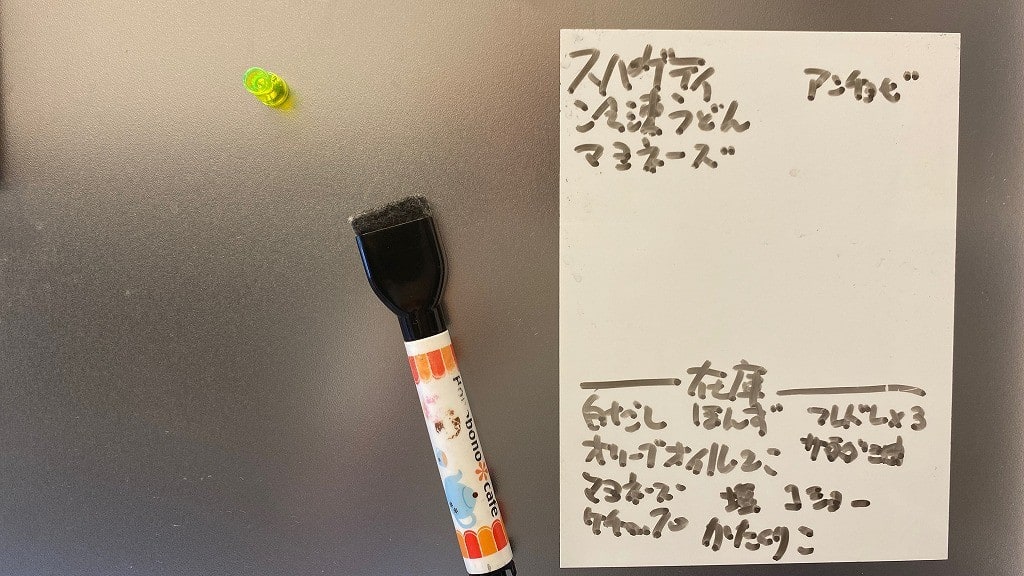 スパゲティ
アンチョビ
冷凍うどん
マヨネーズ
在庫
白だし ぽんず フレドレ×3
オリーブオイル2こ
マヨネーズ 塩 コショー
ケチャップ かたくりこ
bono cafe